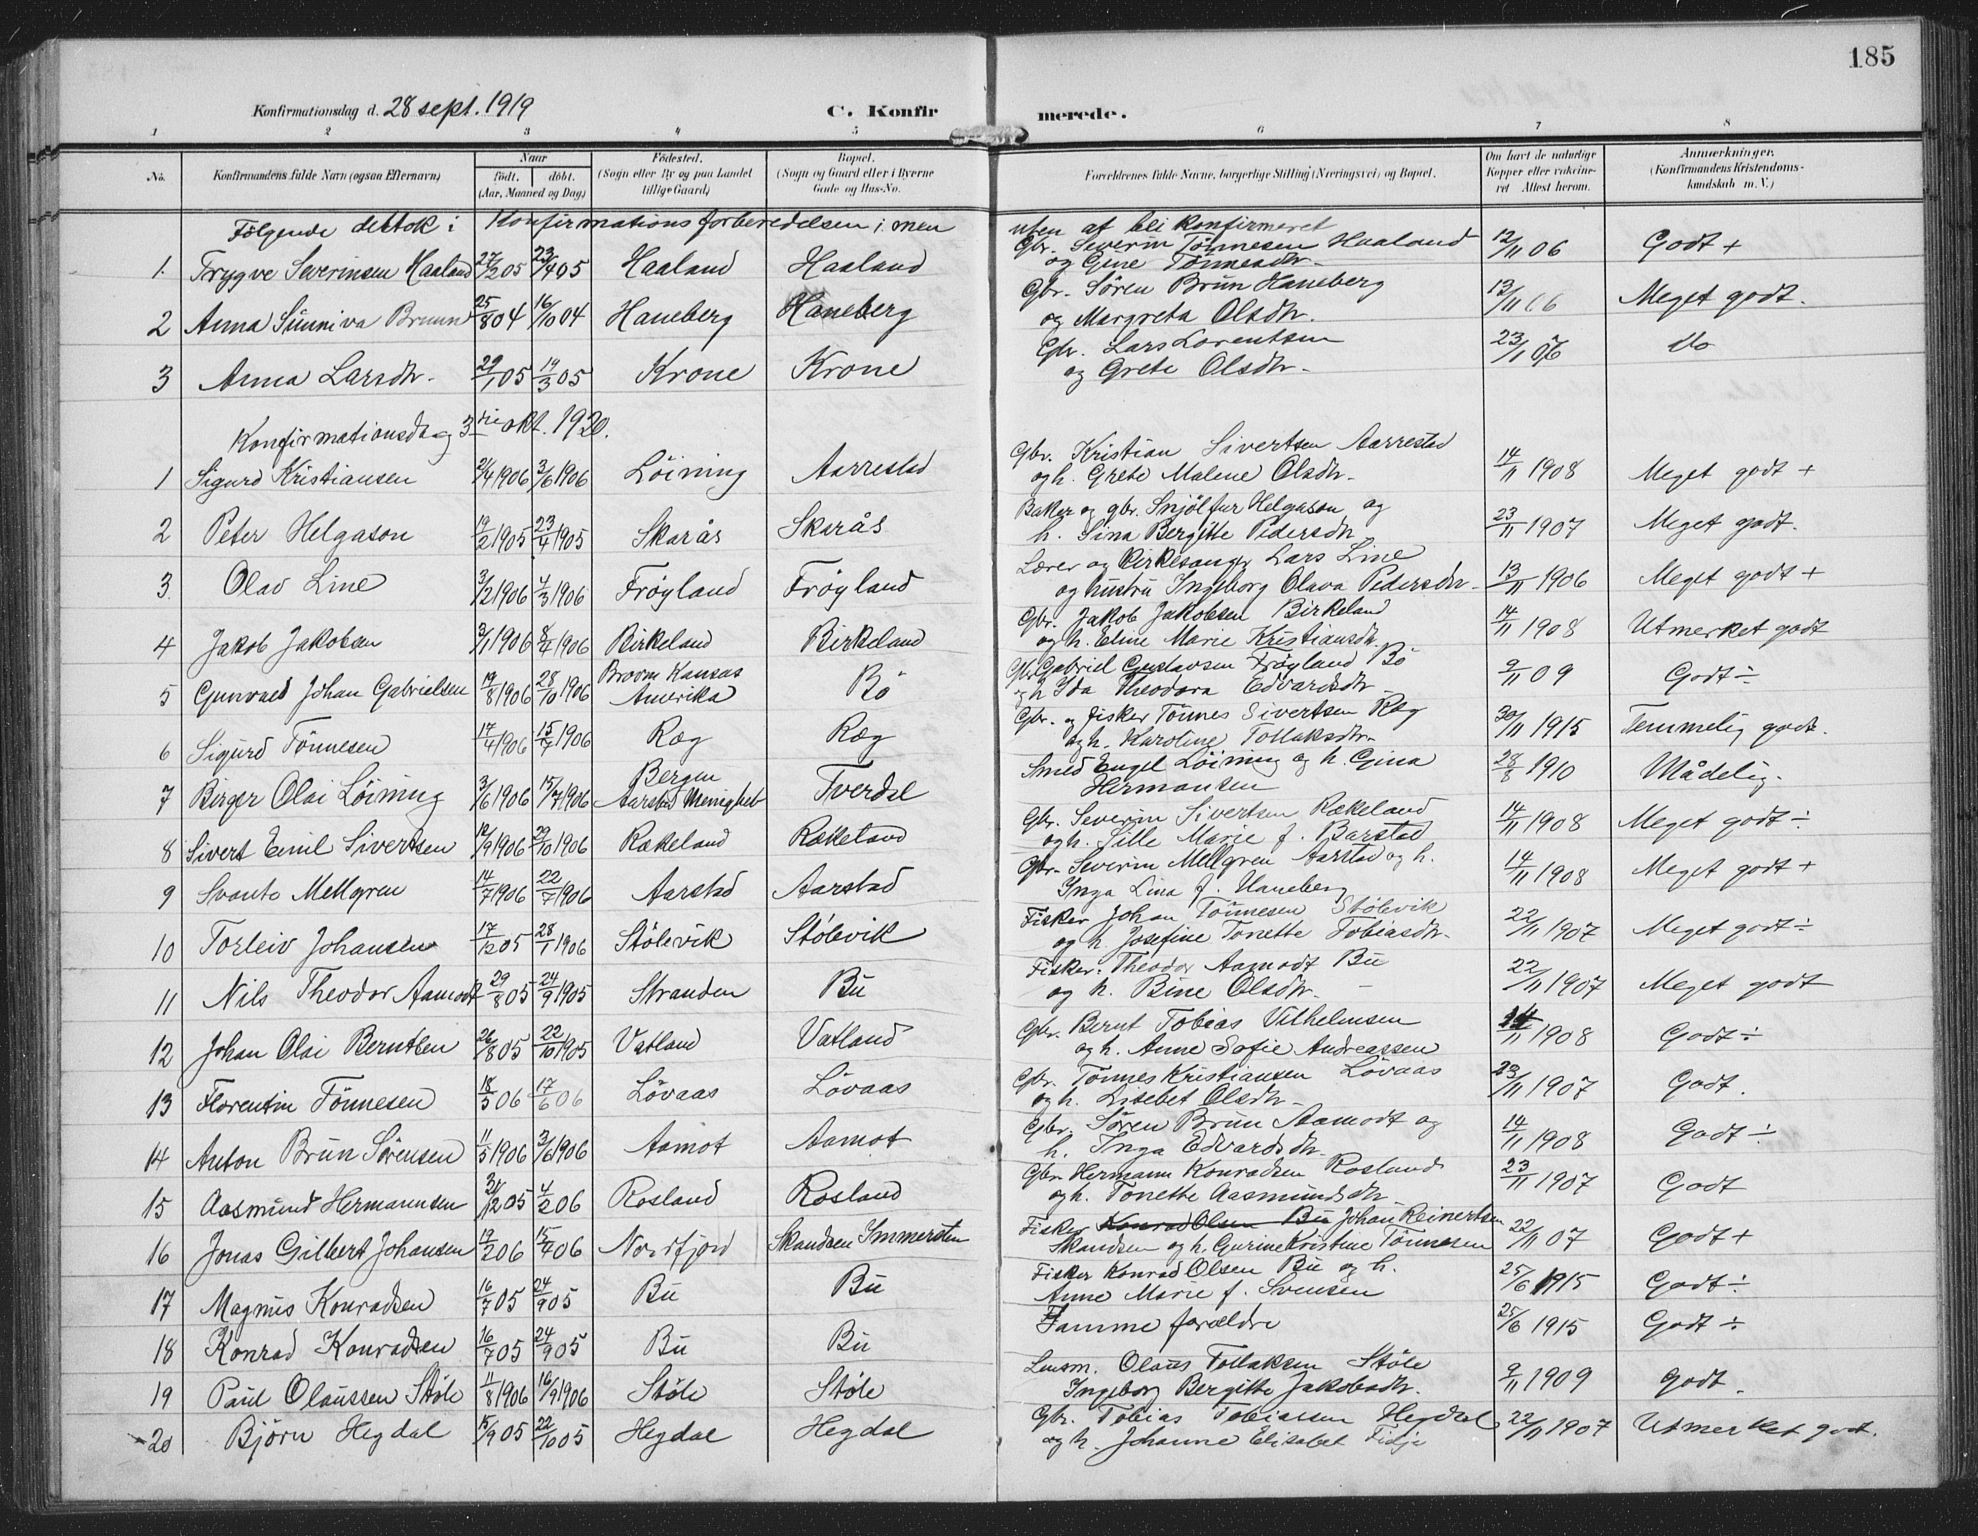 185
Konfirmationsdag d. 28 sept. 1919 C. Konfirmerede.
1 2 3 4 5 6 7 8
No. Konfirmandens fulde Navn (ogsaa Efternavn) Naar født. døbt. (Aar, Maaned og Dag) Fødested. (Sogn eller By og paa Landet tillige Gaard) Bopæl. (Sogn og Gaard eller i Byerne Gade og Hus-No. Forældrenes fulde Navne, borgerlige Stilling (Næringsvei) og Bopæl. Om havt de naturlige Kopper eller vaccineret Attest herom. Anmærkninger. (Konfirmandens Kristendomskundskab m. V.)
Følgende deltok i Konfirmationsforberedelsen; men uten at bli konfirmeret
1. Trygve Severinsen Haaland 27/2 05 23/4 05 Haaland Haaland Gbr. Severin Tönnesen Haaland og Gine Tönnesdtr. 12/11 06 Godt +
2 Anna Sünniva Bruun 25/8 04 16/10 04 Haneberg Haneberg Gbr. Sören Brun Haneberg og Margreta Olsdtr. 13/11 06 Meget godt.
3 Anna Larsdtr. 29/1 05 19/3 05 Krone Krone Gbr. Lars Larentsen og Grete Olsdtr. 23/1 06 do
Konfirmationsdag 3die okt. 1920.
1 Sigurd Kristiansen 21/4 1906 3/6 1906 Löining Aarrestad Gbr. Kristian Sivertsen Aarrestad og h. Grete Malene Olsdtr. 14/11 1908 Meget godt +
2 Peter Helgason 19/2 1905 23/4 1905 Skarås Skarås Baker og gbr. Snjölfur Helgason og h. Sina Bergitte Pedersdtr. 23/11 1907 Meget godt.
3. Olav Line 3/2 1906 4/3 1906 Fröyland Fröyland Lærer og Kirkesanger Lars Line og hustru Ingeborg Olava Pedersdtr. 13/11 1906 Meget godt +
4 Jakob Jakobsen 3/1 1906 8/4 1906 Birkeland Birkeland Gbr. Jakob Jakobsen Birkeland og h. Eline Marie Kristiansdtr. 14/11 1908 Utmerket godt
5 Gunvald Johan Gabrielsen 19/8 1906 28/10 1906 Broom Kansas Amerika Bö Gbr. Gabriel Gustavsen Fröyland Bö og h. Ida Theodora Edvardsdtr. 9/11 09 Godt ÷
6 Sigurd Tönnesen 17/4 1906 15/7 1906 Ræg Ræg Gbr. og fisker Tönnes Sivertsen Ræg og h. Karoline Tollaksdtr. 30/11 1915 Temmelig godt.
7 Birger Olai Löining 3/6 1906 15/7 1906 Bergen Aarstad Menighet Tverdal Smed Engel Löining og h. Gina Hermansen 28/8 1910 Mådelig.
8 Sivert Emil Sivertsen 12/9 1906 29/10 1906 Rækeland Rækeland Gbr. Severin Sivertsen Rækeland og h. Sille Marie f. Barstad 14/11 1908 Meget godt ÷
9 Svante Mellgren 14/7 1906 22/7 1906 Aarstad Aarstad Gbr. Severin Mellgren Aarstad og h. Inga Lina f. Haneberg 14/11 1908 Meget godt +
10 Torleiv Johansen 17/12 05 28/1 1906 Stölevik Stölevik Fisker Johan Tönnesen Stölevik og h. Josefine Tonette Tobiasdtr. 22/11 1907 Meget godt ÷
11 Nils Theodor Aamodt 29/8 05 24/9 1905 Stranden Bu Fisker. Theodor Aamodt Bu og h. Bine Olsdtr. 22/11 1907 Meget godt
12 Johan Olai Berntsen 26/8 05 22/10 1905 Vatland Vatland Gbr. Bernt Tobias Vilhelmsen og h. Anne Sofie Andreassen 14/11 1908 Godt ÷
13 Florentin Tönnesen 18/5 06 17/6 06 Lövaas Lövaas Gbr. Tönnes Kristiansen Lövaas og h. Lisebet Olsdtr. 23/11 1907 Godt.
14 Anton Brun Sörensen 11/5 1906 3/6 1906 Aamot Aamot Gbr. Sören Brun Aamodt og h. Inga Edvardsdtr. 14/11 1908 Godt ÷
15 Aasmund Hermannsen 31/12 05 4/2 06 Rosland Rosland Gbr. Hermann Konradsen Rosland og h. Tonette Aasmundsdtr. 23/11 1907 Godt
16 Jonas Gilbert Johansen 19/2 06 15/4 06 Nordfjord Skandsen Immersten Fisker Konrad Olsen Bu Johan Reinertsen Skandsen og h. Gurine Kristine Tönnesen 22/11 07 Godt +
17 Magnus Konradsen 16/7 05 24/9 05 Bu Bu Fisker Konrad Olsen Bu og h. Anne Marie f. Svensen 25/6 1915 Godt ÷
18 Konrad Konradsen 16/7 05 24/9 05 Bu Bu Samme forældre 25/6 1915 Godt ÷
19 Paul Olaussen Støle 11/8 1906 16/9 1906 Støle Støle Lensm. Olaus Tollaksen Støle Ingeborg Bergitte Jakobsdtr. 9/11 1909 godt.
20 Bjørn Hegdal 15/9 05 22/10 05 Hegdal Hegdal Gbr. Tobias Tobiassen Hegdal og h. Johanne Elisabet Fidje 22/11 1907 Utmerket godt.